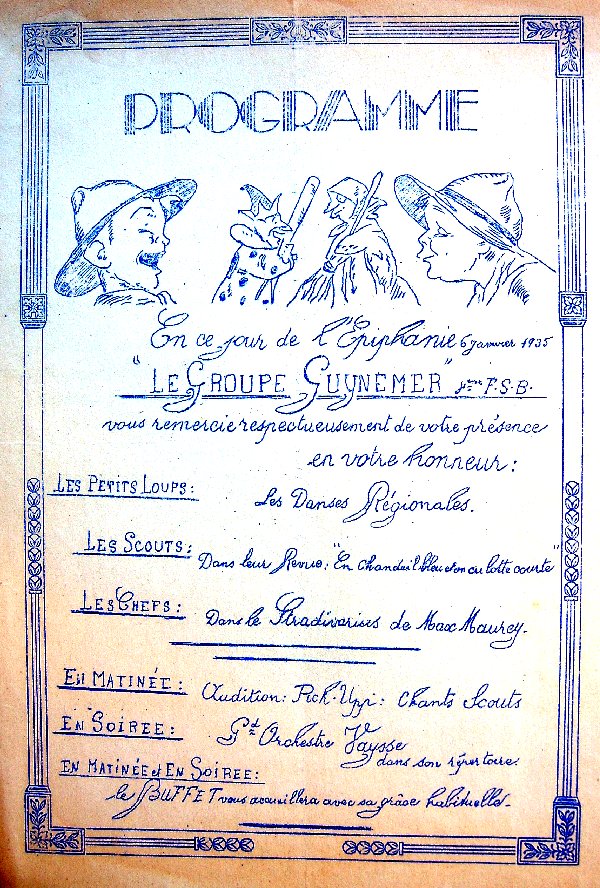 PROGRAMME
En ce jour de l'Epiphanie 6 Janvier 1935
"LE GROUPE GUYNEMER" F.S.B.
vous remercie respectueusement de votre présence
en votre honneur:
LES PETITS LOUPS: Les Danses Régionales.
LES SCOUTS: Dans leur Revue: "En chandail bleu et en culotte courte"
LES CHEFS: Dans le Stradivarius de Max Maurey.
EN MATINÉE: Audition: Pick-Upp: Chants Scouts
EN SOIREE: Gd Orchestre Vaysse
dans son répertoire
EN MATINÉE et EN SOIREE:
le BUFFET vous accueillera avec sa grâce habituelle.